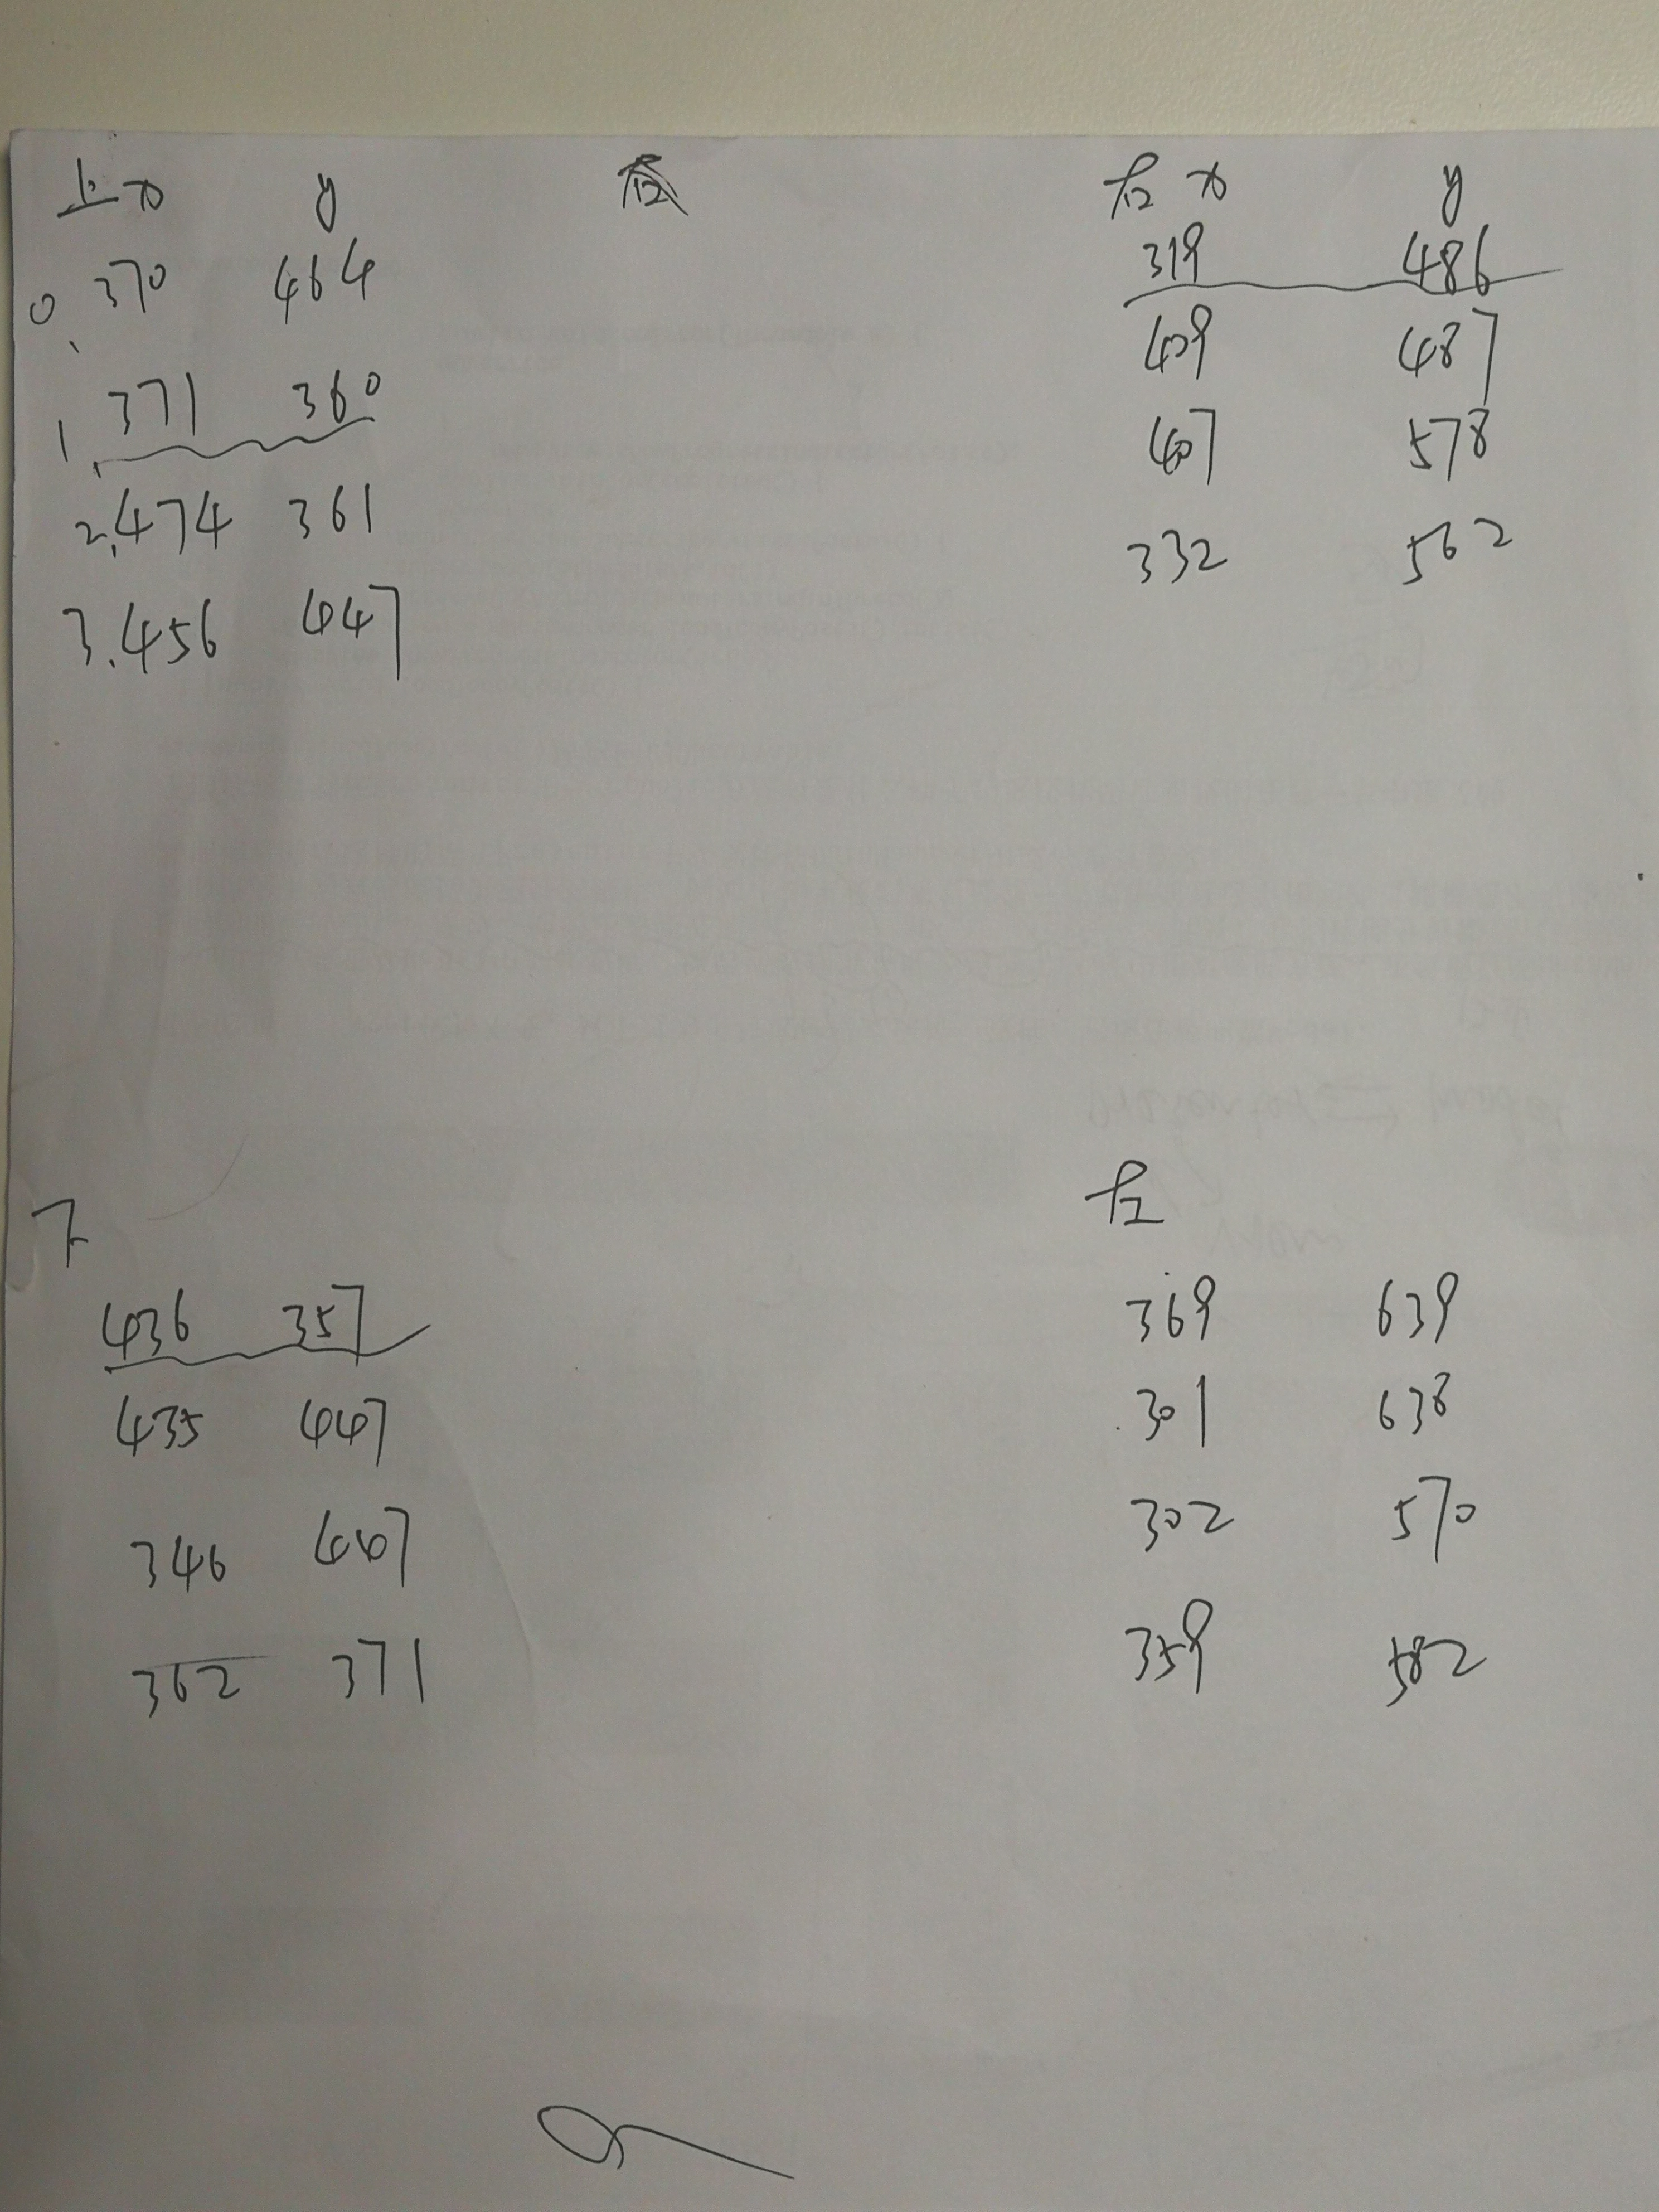 上 x y
0. 370 464
1. 371 360
2. 474 361
3. 456 447
右 x y
319 486
409 487
407 578
332 562
下
436 357
435 447
346 447
362 371
左
369 639
301 638
302 570
359 582